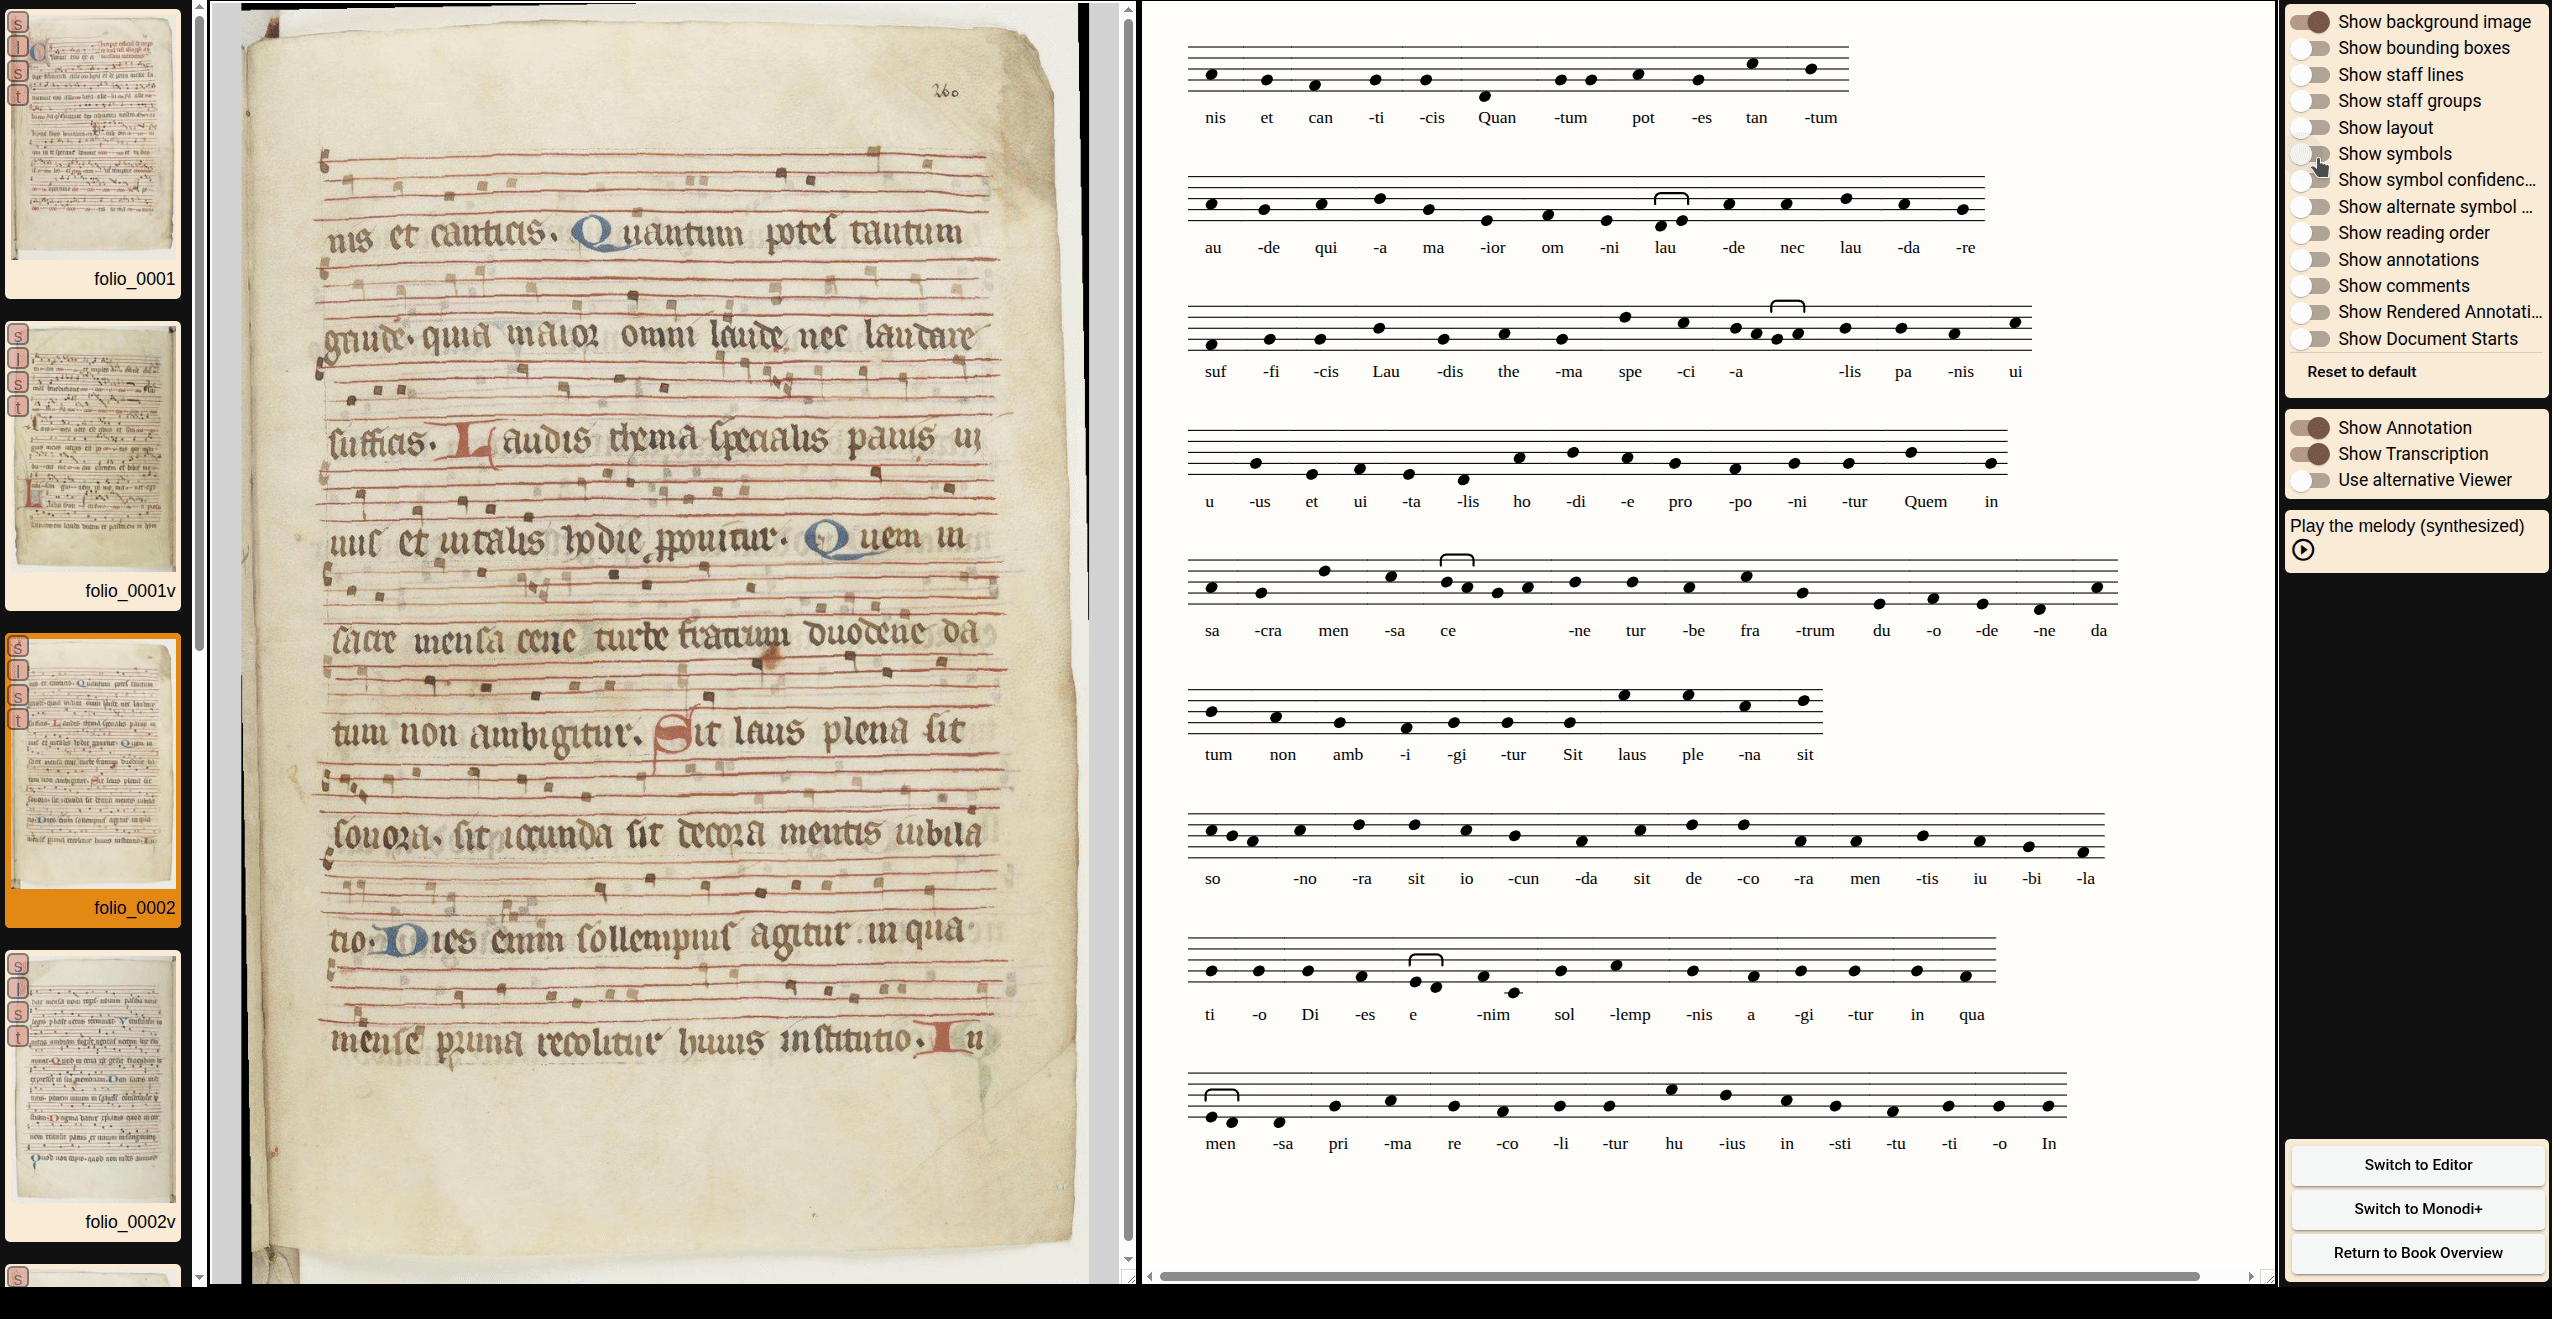 folio_0001
folio_0001v
folio_0002
folio_0002v
260
nis et canticis. Quantum potes tantum
gaude. quia maior omni laude nec laudare
sufficis. Laudis thema specialis panis ui
uus et uitalis hodie ponitur. Quem in
sacre mensa cene turbe fratrum duodene da
tum non ambigitur. Sit laus plena sit
sonora. sit iocunda sit decora mentis iubila
tio. Dies enim sollempnis agitur. in qua
mense prima recolitur huius institutio. In
nis et can -ti -cis Quan -tum pot -es tan -tum
au -de qui -a ma -ior om -ni lau -de nec lau -da -re
suf -fi -cis Lau -dis the -ma spe -ci -a -lis pa -nis ui
u -us et ui -ta -lis ho -di -e pro -po -ni -tur Quem in
sa -cra men -sa ce -ne tur -be fra -trum du -o -de -ne da
tum non amb -i -gi -tur Sit laus ple -na sit
so -no -ra sit io -cun -da sit de -co -ra men -tis iu -bi -la
ti -o Di -es e -nim sol -lemp -nis a -gi -tur in qua
men -sa pri -ma re -co -li -tur hu -ius in -sti -tu -ti -o In
Show background image
Show bounding boxes
Show staff lines
Show staff groups
Show layout
Show symbols
Show symbol confidenc...
Show alternate symbol ...
Show reading order
Show annotations
Show comments
Show Rendered Annotati...
Show Document Starts
Reset to default
Show Annotation
Show Transcription
Use alternative Viewer
Play the melody (synthesized)
Switch to Editor
Switch to Monodi+
Return to Book Overview